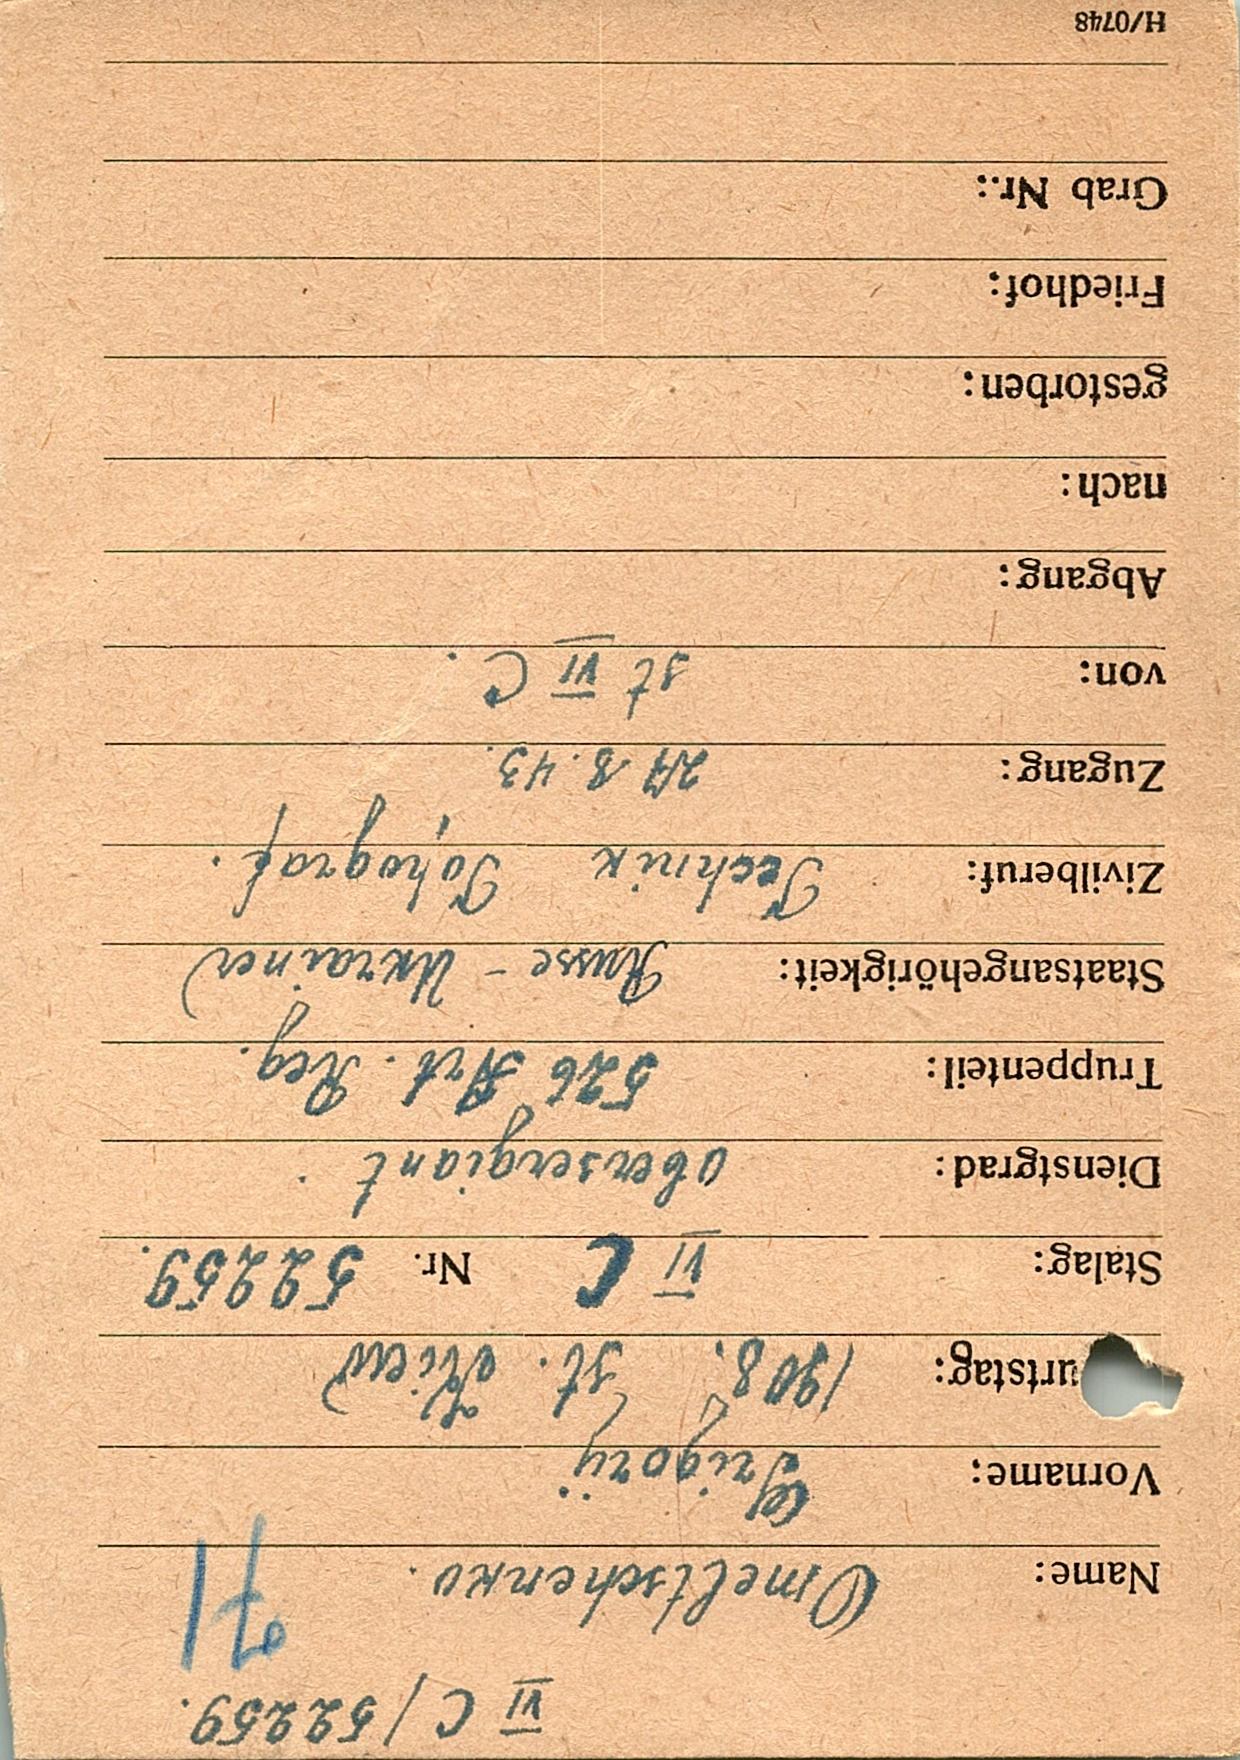 VI C/52259.
71
Name: Omeltschenko.
Vorname: Grigorij
urtstag: 1908. st. Kiew
Stalag: VI C Nr. 52259.
Dienstgrad: Obersergiant.
Truppenteil: 526 Art. Reg.
Staatsangehörigkeit: Russe - Ukrainer
Zivilberuf: Technik Topograf.
Zugang: 8.43.
von: st VI C.
Abgang:
nach:
gestorben:
Friedhof:
Grab Nr.:
H/0748